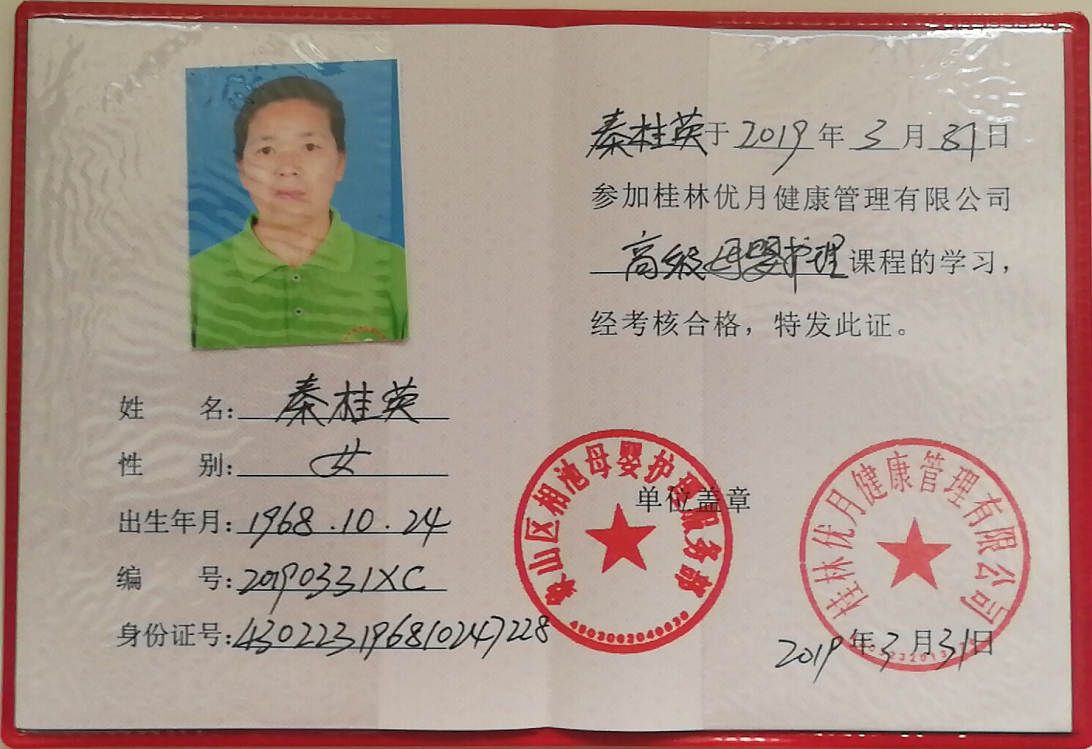 姓 名：秦桂英
性 别：女
出生年月：1968.10.24
编 号：20190331XC
身份证号：430223196810247228
秦桂英于2019年3月31日
参加桂林优月健康管理有限公司
高级母婴护理课程的学习，
经考核合格，特发此证。
单位盖章
象山区相池母婴护理服务部
桂林优月健康管理有限公司
2019年3月31日